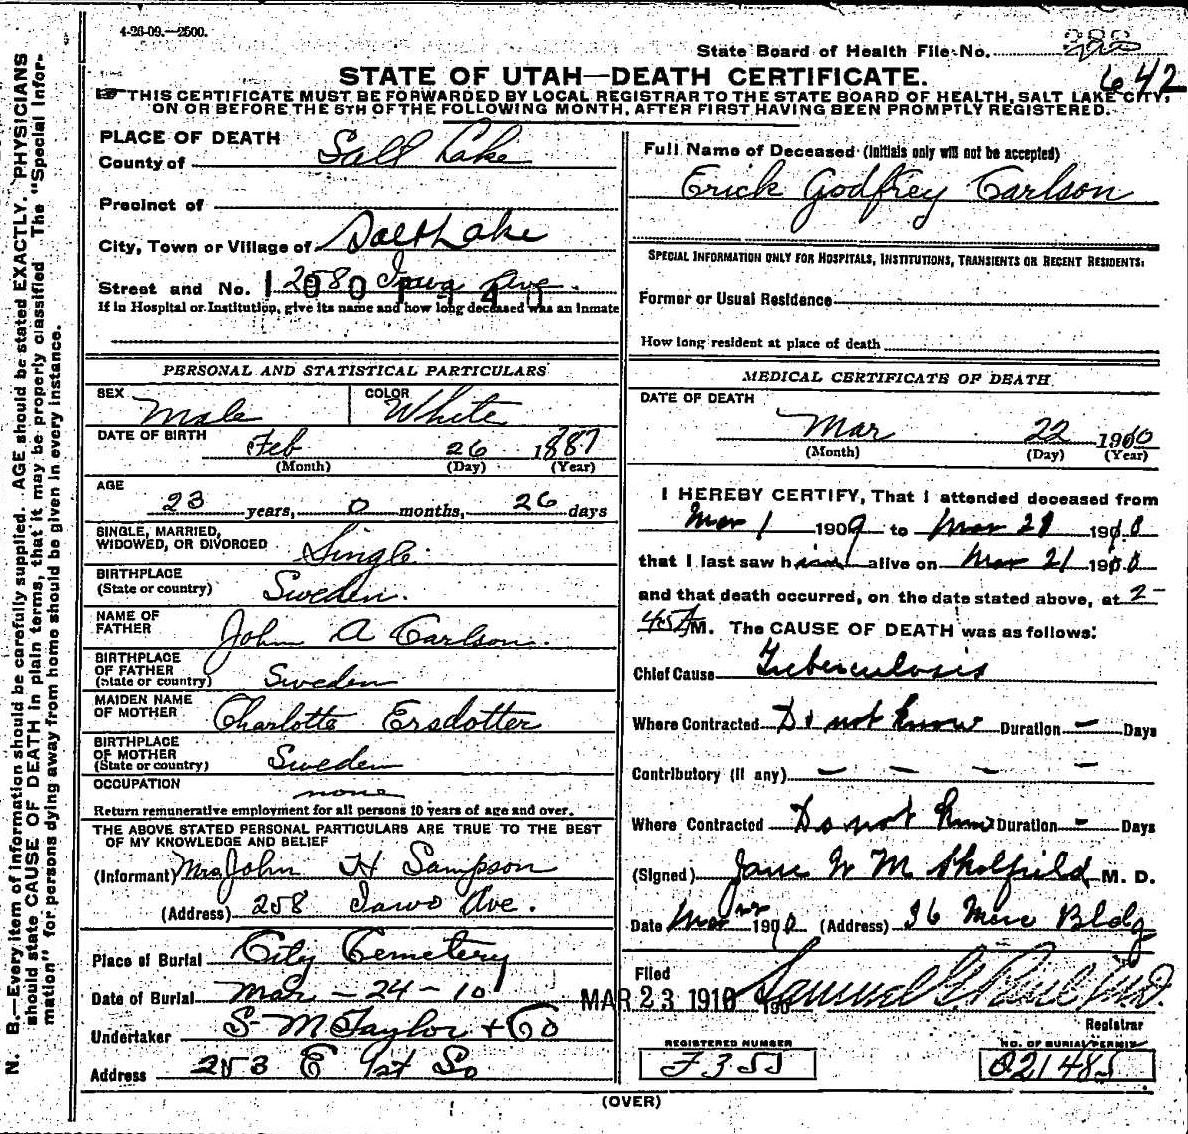 4-26-09.—2500.
State Board of Health File No.
642
STATE OF UTAH—DEATH CERTIFICATE.
THIS CERTIFICATE MUST BE FORWARDED BY LOCAL REGISTRAR TO THE STATE BOARD OF HEALTH, SALT LAKE CITY,
ON OR BEFORE THE 5TH OF THE FOLLOWING MONTH, AFTER FIRST HAVING BEEN PROMPTLY REGISTERED.
N. B.—Every item of information should be carefully supplied. AGE should be stated EXACTLY. PHYSICIANS
should state CAUSE OF DEATH in plain terms, that it may be properly classified. The "Special Infor-
mation" for persons dying away from home should be given in every instance.
PLACE OF DEATH
County of Salt Lake
Precinct of
City, Town or Village of Salt Lake
Street and No. 258 Iowa Ave.
If in Hospital or Institution, give its name and how long deceased was an inmate
PERSONAL AND STATISTICAL PARTICULARS
SEX Male COLOR White
DATE OF BIRTH Feb 26 1887
(Month) (Day) (Year)
AGE
23 years, 0 months, 26 days
SINGLE, MARRIED,
WIDOWED, OR DIVORCED Single.
BIRTHPLACE
(State or country) Sweden.
NAME OF
FATHER John A Carlson.
BIRTHPLACE
OF FATHER
(State or country) Sweden
MAIDEN NAME
OF MOTHER Charlotte Ersdotter
BIRTHPLACE
OF MOTHER
(State or country) Sweden
OCCUPATION none
Return remunerative employment for all persons 10 years of age and over.
THE ABOVE STATED PERSONAL PARTICULARS ARE TRUE TO THE BEST
OF MY KNOWLEDGE AND BELIEF
(Informant) Mrs John H Sampson
(Address) 258 Iowa Ave.
Place of Burial City Cemetery
Date of Burial Mar - 24 - 10
Undertaker S- M Taylor + Co
Address 253 E 1st So
Full Name of Deceased (Initials only will not be accepted)
Erick Godfrey Carlson
SPECIAL INFORMATION ONLY FOR HOSPITALS, INSTITUTIONS, TRANSIENTS OR RECENT RESIDENTS:
Former or Usual Residence
How long resident at place of death
MEDICAL CERTIFICATE OF DEATH
DATE OF DEATH
Mar 22 1910
(Month) (Day) (Year)
I HEREBY CERTIFY, That I attended deceased from
Mar 1 1909 to Mar 21 1910
that I last saw him alive on Mar 21 1910
and that death occurred, on the date stated above, at 2-
45 A M. The CAUSE OF DEATH was as follows:
Chief Cause Tuberculosis
Where Contracted Do not know Duration — Days
Contributory (if any) — — — —
Where Contracted Do not know Duration — Days
(Signed) Jane W M Skolfield M. D.
Date Mar 22 1910 (Address) 36 Merc Bldg
Filed MAR 23 1910 190 Samuel G. Paul M.D.
Registrar
REGISTERED NUMBER
F 355
NO. OF BURIAL PERMIT
021485
(OVER)